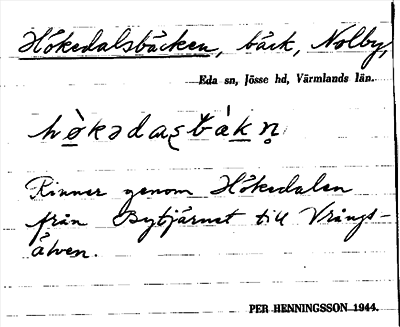 Hökedalsbäcken, bäck, Nolby,
Eda sn, Jösse hd, Värmlands län.
Rinner genom Hökedalen
från Bytjärnet till Vrångs-
älven.
PER HENNINGSSON 1944.